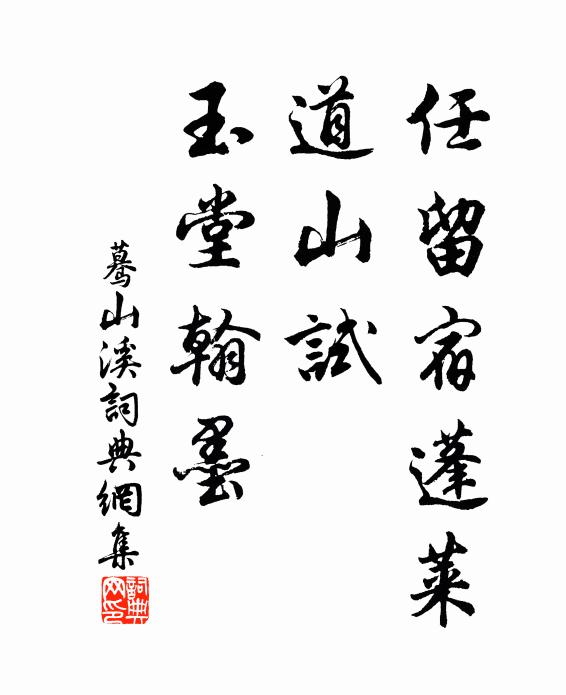 任留宿蓬萊
道山試
玉堂翰墨
驀山溪詞典網集
詞典
网印